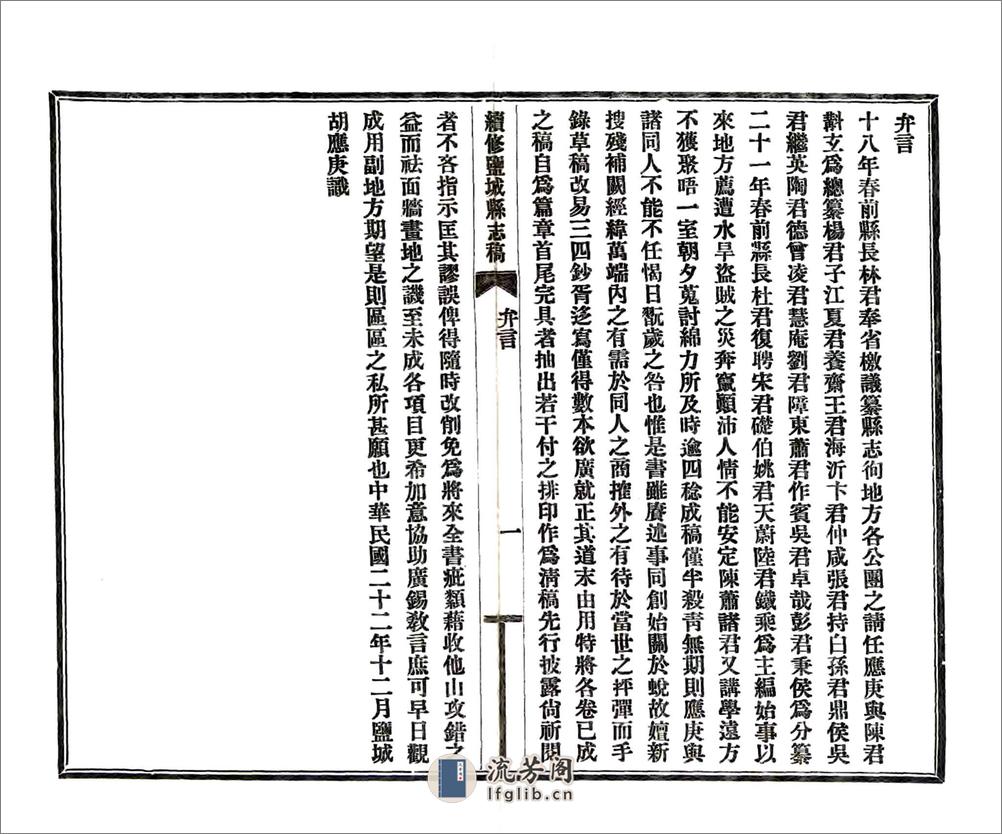 弁言
十八年春前縣長林君奉省檄議纂縣志徇地方各公團之請任應庚與陳君
斠玄爲總纂楊君子江夏君養齋王君海沂卞君仲咸張君持白孫君鼎侯吳
君繼英陶君德曾凌君慧庵劉君障東蕭君作賓吳君卓哉彭君秉侯爲分纂
二十一年春前縣長杜君復聘宋君礎伯姚君天蔚陸君鐵乘爲主編始事以
來地方薦遭水旱盜賊之災奔竄顚沛人情不能安定陳蕭諸君又講學遠方
不獲聚唔一室朝夕蒐討綿力所及時逾四稔成稿僅半殺青無期則應庚與
諸同人不能不任愒日翫歲之咎也惟是書雖賡述事同創始關於蛻故嬗新
搜殘補闕經緯萬端内之有需於同人之商搉外之有待於當世之抨彈而手
錄草稿改易三四鈔胥迻寫僅得數本欲廣就正其道末由用特將各卷已成
之稿自爲篇章首尾完具者抽出若干付之排印作爲淸稿先行披露尙祈閱
續修鹽城縣志稿
弁言
一
者不吝指示匡其謬誤俾得隨時改削免爲將來全書疵纇藉收他山攻錯之
益而祛面牆畫地之譏至未成各項目更希加意協助廣錫敎言庶可早日觀
成用副地方期望是則區區之私所甚願也中華民國二十二年十二月鹽城
胡應庚識
流芳阁
lfglib.cn